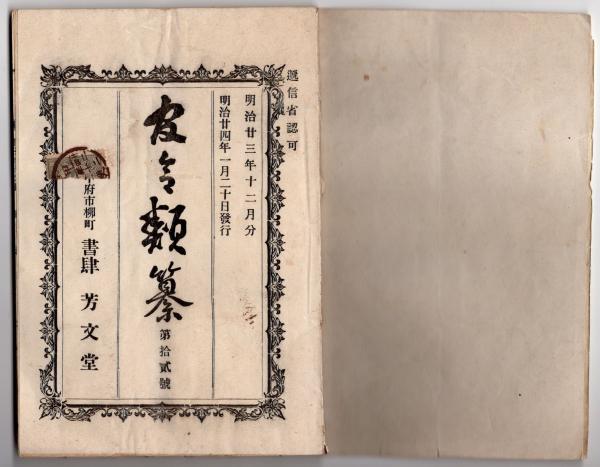 遞信省認可
明治廿三年十二月分
明治廿四年一月二十日發行
官令類纂
第拾貳號
府市柳町 書肆 芳文堂